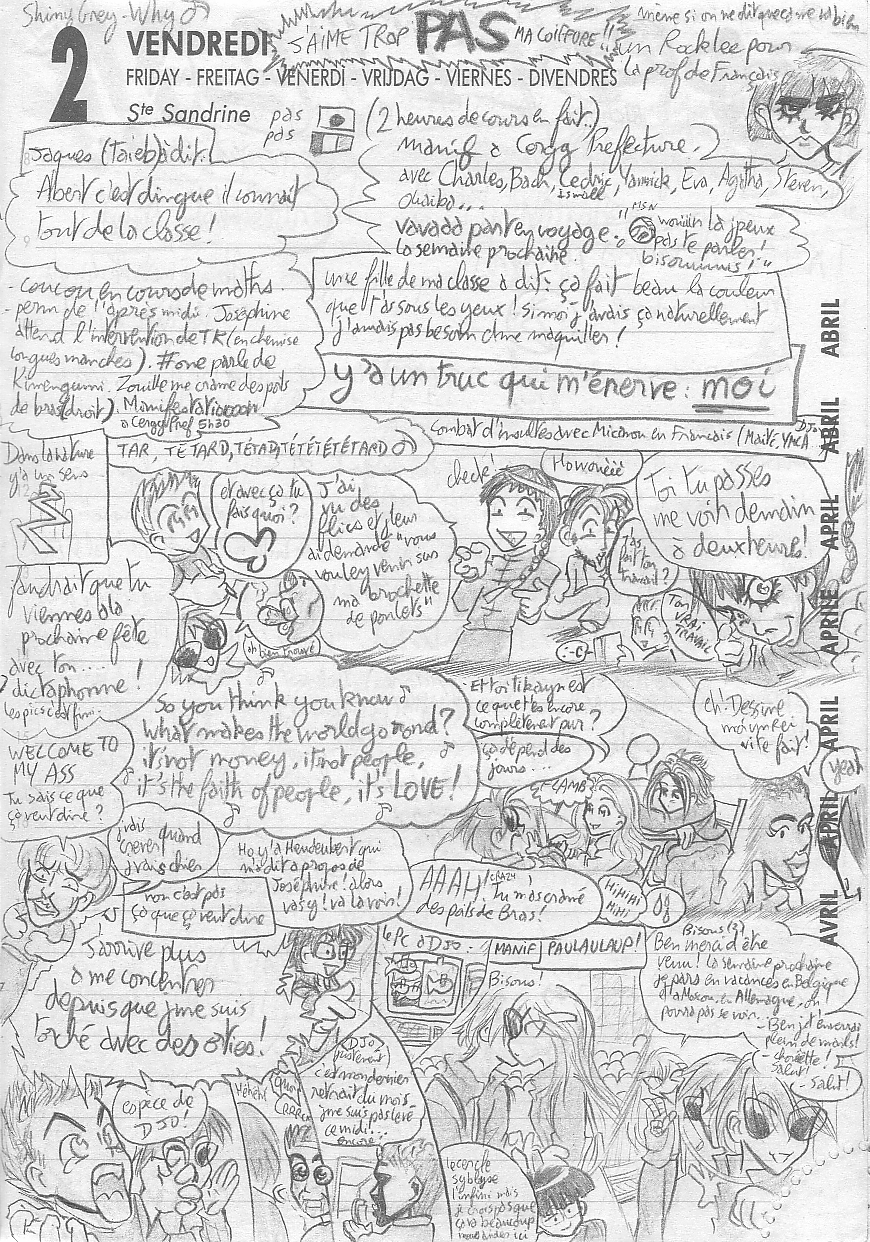 Shiny Grey - Why ♂
J'AIME TROP PAS MA COIFFURE!!
même si on ne dit
un Rocklee pour
la prof de Français
2
VENDREDI
FRIDAY - FREITAG - VENERDI - VRIJDAG - VIERNES - DIVENDRES
Ste Sandrine
pas
pas
(2 heures de cours en fait..)
Jaques (Taieb) à dit:
Albert c'est dingue il connait
tout de la classe!
manif à Cergy Prefecture.
avec Charles, Bach, Cedric, Yannick, Eva, Agatha, Steven,
ismael
vavadd part en voyage.
la semaine prochaine.
MSN
la jpeux
pas te parler!
- coucou en cours de maths.
- perm de l'après midi. Joséphine
attend l'intervention de TK (en chemise
longues manches). #one parle de
Kimengumi. Zouille me crame des poils
de bras (droit). Manifestatiooon
à Cergy Pref 5h30
une fille de ma classe à dit: ça fait beau la couleur
que t'as sous les yeux! Si moi j'avais ça naturellement
j'aurais pas besoin d'me maquiller!
y'a un truc qui m'énerve: moi
combat d'insultes avec Micinou en Francais (Maité, YMCA
DJO
Dans la nature
y'a un sens
TAR, TÉTARD, TÉTAD, TÉTÉTÉTÉTARD ♂
et avec ça tu
fais quoi?
J'ai
vu des
flics et leur
ai demandé "vous
voulez venir sur
ma brochette
de poulets"
ah bien trouvé
check!
Howouéié
Toi tu passes
me voir demain
à deux heures!
T'as
fait ton
travail?
Ton
VRAI
TRAVAIL
faudrait que tu
viennes à la
prochaine fête
avec ton....
dictaphonne!
les pics c'est fini.
So you think you know
what makes the world go rond?
it's not money, it's not people,
it's the faith of people, it's LOVE!
Et toi tikayn est
ce que t'es encore
complètement pur?
ça dépend des
jours...
eh! Dessine
moi un Rei
vite fait!
yeah
WELCOME TO
MY ASS
Tu sais ce que
ça veut dire?
CLAMB
j'vais
crever quand
j'vais chier
non c'est pas
ça que ça veut dire
Ho y'a Heudeubert qui
m'a dit a propos de
Joséphine! alors
vas y! va la voir!
AAAH! CRAZY
Tu m'as cramé
des poils de Bras!
HiHiHi
HiHi
J'arrive plus
a me concentrer
depuis que j'me suis
torché avec des orties!
le Pc à DJO.
MANIF
PAULAULAUP!
Bisous!
Bisous(?)
Ben merci d'être
venu! La semaine prochaine
je pars en vacances en Belgique
et à Moscou, en Allemagne, on
pourra pas se voir...
- Ben j't'enverrai
plein de mails!
- chouette!
Salut!
- Salut!
espèce de
DJO!
Héhéhé
quoi
(DJO)
justement
c'est mon dernier
retrait du mois
j'me suis pas levé
ce midi...
encore...
le cercle
sybolyse
l'infini mais
je crois pas que
ça va beaucoup
nous aider ici
ABRIL
ABRIL
APRIL
APRILE
APRIL
APRIL
AVRIL